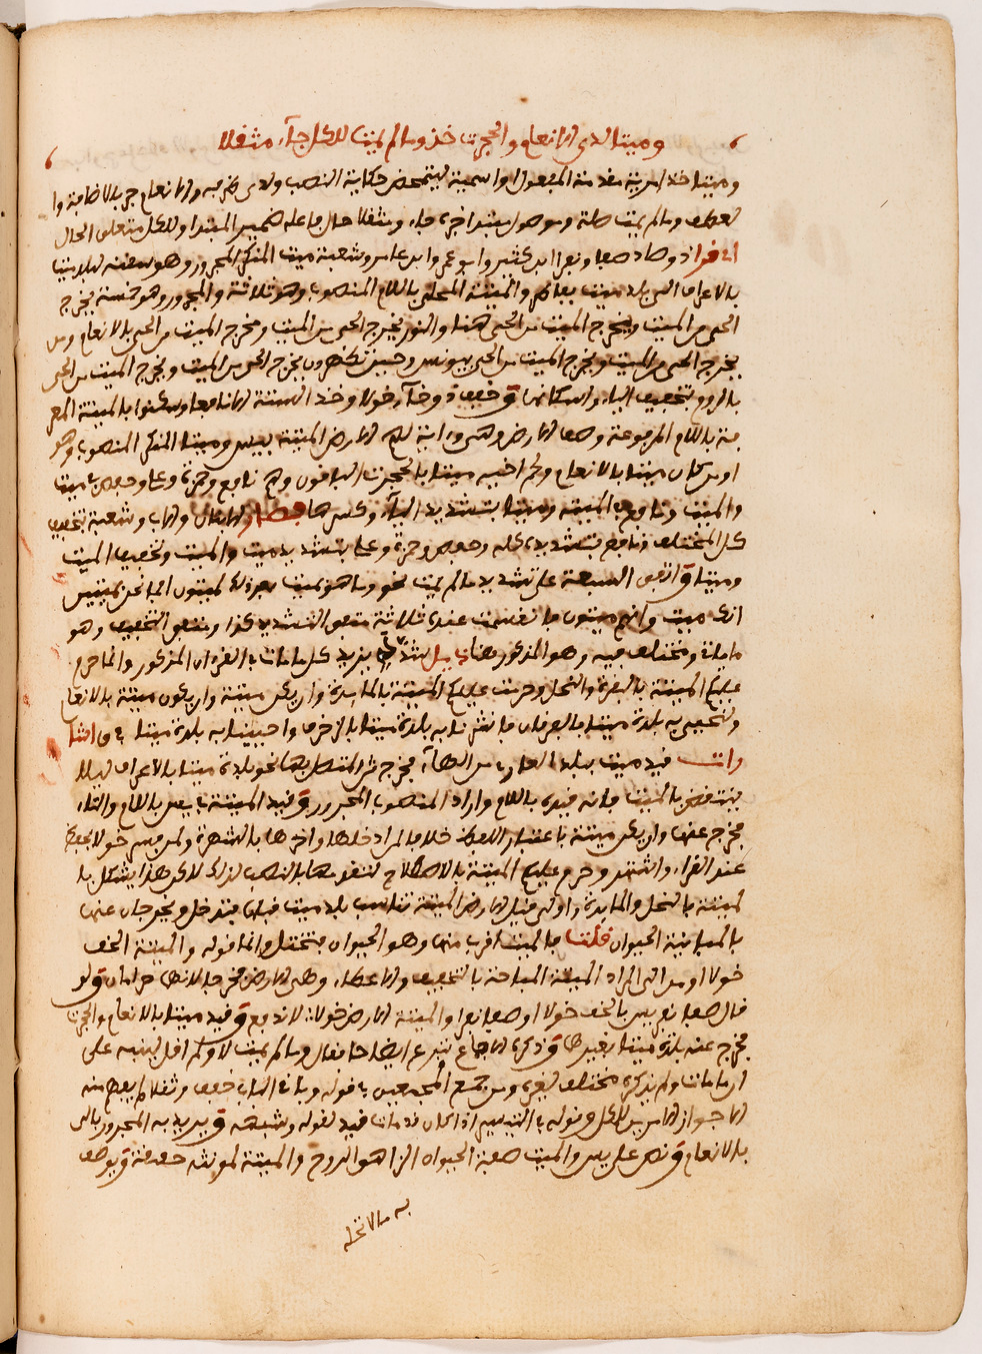 وميتا لدى الانعام والحجرات خذ وما لم يمت للكل جاء مثقلا
وميتا خذ امرية مقدمة المفعول او اسمية ليتمحض حكاية النصب ولدى ظرفه والانعام جر بالاضافة وا
لعطف وما لم يمت صلة وموصول مبتدا خبره جاء ومثقلا حال فاعله ضمير المبتدا وللكل متعلق الحال
اى قرا ذو صاد صفا ونفرا ابن كثير وابو عمرو وابن عامر وشعبة ميت المنكر المجرور وهو سقنه لبلد ميت
بالاعراف الى بلد ميت بفاطر والميتة المحلى باللام المنصوب وهو ثلاثة والمجرور وهو خمسة يخرج
الحى من الميت ويخرج الميت من الحى هنا والنور يخرج الحى من الميت ومخرج الميت من الحى بالانعام ومن
يخرج الحى من الميت ويخرج الميت من الحى بيونس وحين تظهرون يخرج الحى من الميت ويخرج الميت من الحى
بالروم بتخفيف الياء واسكانها و خفف ذو خاء خولا وخذ الستة الا نافعا وسكنوا بالميتة المعر
فة باللام المرفوعة وصف الارض وهى واية لهم الارض الميتة بيس وميتا المنكر المنصوب وهو
او من كان ميتا بالانعام ولحم اخيه ميتا بالحجرات الباقون وهم نافع وحمزة وعلى وحفص ميت
والميت ونافع الميتة وميتا بتشديد الياء وكسرها فصار الابنان والاب وشعبة بتخفيف
كل المختلف ونافع بتشديد كله وحفص وحمزة وعلى بتشديد ميت والميت وتخفيف الميتة
وميتا و اتفق السبعة على تشديد ما لم يمت نحو وما هو بميت بعد ذلك لميتون افما نحن بميتين
انك ميت وانهم ميتون فانقسمت عنده ثلاثة متفق التشديد كذا ومتفق التخفيف وهو
ما مات ومختلف فيه وهو المذكور يزيد كل ما مات فى القران المذكور وانما حرم
عليكم الميتة بالبقرة والنحل وحرمت عليكم الميتة بالمائدة وان يكن ميتة وان يكون ميتة بالانعام
ولنحيى به بلدة ميتا بالفرقان فانشرنا به بلدة ميتا بالزخرف واحيينا به بلدة ميتا بق اشا
رات قيد ميت ببلد العارى من الهاء فخرج المتصل بها نحو بلدة ميتا بالاعراف ليلا
ينتقض بالميت فانه قيده باللام واراد المنصوب المجرور و قيد الميتة بيس باللام والتاء
فخرج عنها وان يكن ميتة باعتبار اللفظ خلافا لمن ادخلها واخرها بالشهرة ولم يرسم خولا بحفظ
عند القراء واشتهر وحرم عليكم الميتة بالاصطلاح لتقدمها بالنصب لذلك لكن هذا يشكل با
لميتة بالنحل والمائدة واولى قيل الارض الميتة تناسب بلد ميت قبلها فتدخل ويخرجان عنها
بالمباينة الحيوان قلت فالميت اقرب منها وهو الحيوان فتختل وانما قوله والميتة الخف
خولا او من الى المراد الميتة المباحة بالتخفيف والاعطاء وهى الارض فخرجا لانها حرامان و لو
قال صفا نفر يس بالخف خولا او صفا نفرا والميتة الارض خولا لاندفع و قيد ميتا بالانعام والحجرات
فخرج عنه بلدة ميتا بغيرها و ذكره الاجماع تبرع ايضا حا فقال وما لم يمت لا ولم اقل لينبه على
ان ما مات ولم يذكره مختلف لغيره ومن جمع المجمعين قوله وباقى الباب خفف وثقلا لم يفهم منه
الاجواز الامرين للكل وقوله فى التيسير اذا كان قد مات قيد لقوله وشبهه و يريد به المجرور بالى
بالانعام و نص على يس والميت صفة الحيوان الزاهق الروح والميتة لمؤنثه حقيقة و يوصف
به مالا تحله